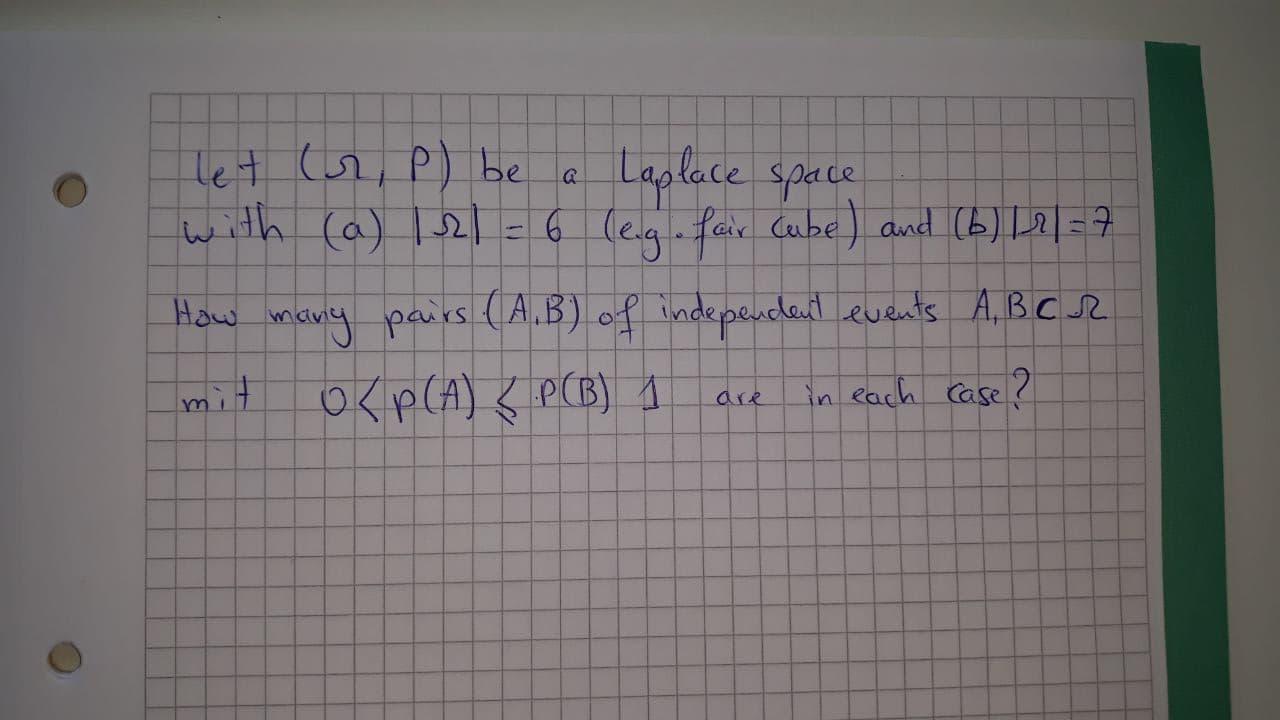 let (Ω, P) be a Laplace space
with (a) |Ω| = 6 (e.g. fair cube) and (b) |Ω| = 7
How many pairs (A,B) of independent events A, B ⊂ Ω
mit 0 < p(A) ≤ P(B) 1 are in each case?